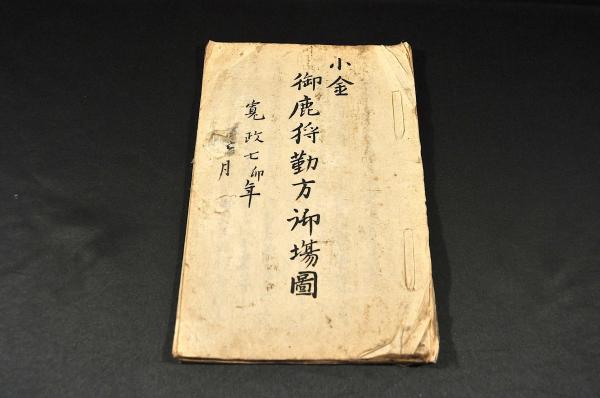 小金
御鹿狩勤方御場圖
寛政七卯年
月